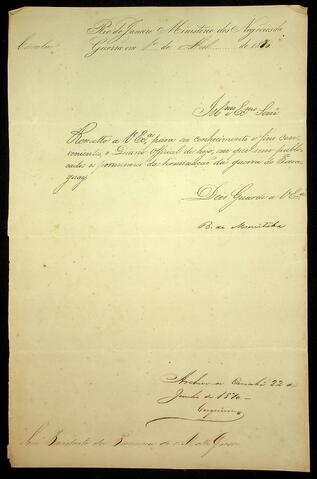 Circular Rio de Janeiro Ministerio dos Negocios da
Guerra em 1º de Abril de 1870
Illmo e Exmo Senr
Remetto a V. Exª para seu conhecimento e fins con-
venientes, o Diario Official de hoje, em que vem publi-
cados os pormenores da terminação da guerra do Para-
guay.
Deos Guarde a V. Exª
B. de Muritiba
Archive-se Cuiabá 22 de
Junho de 1870
Senr Presidente da Provincia de Mato Grosso